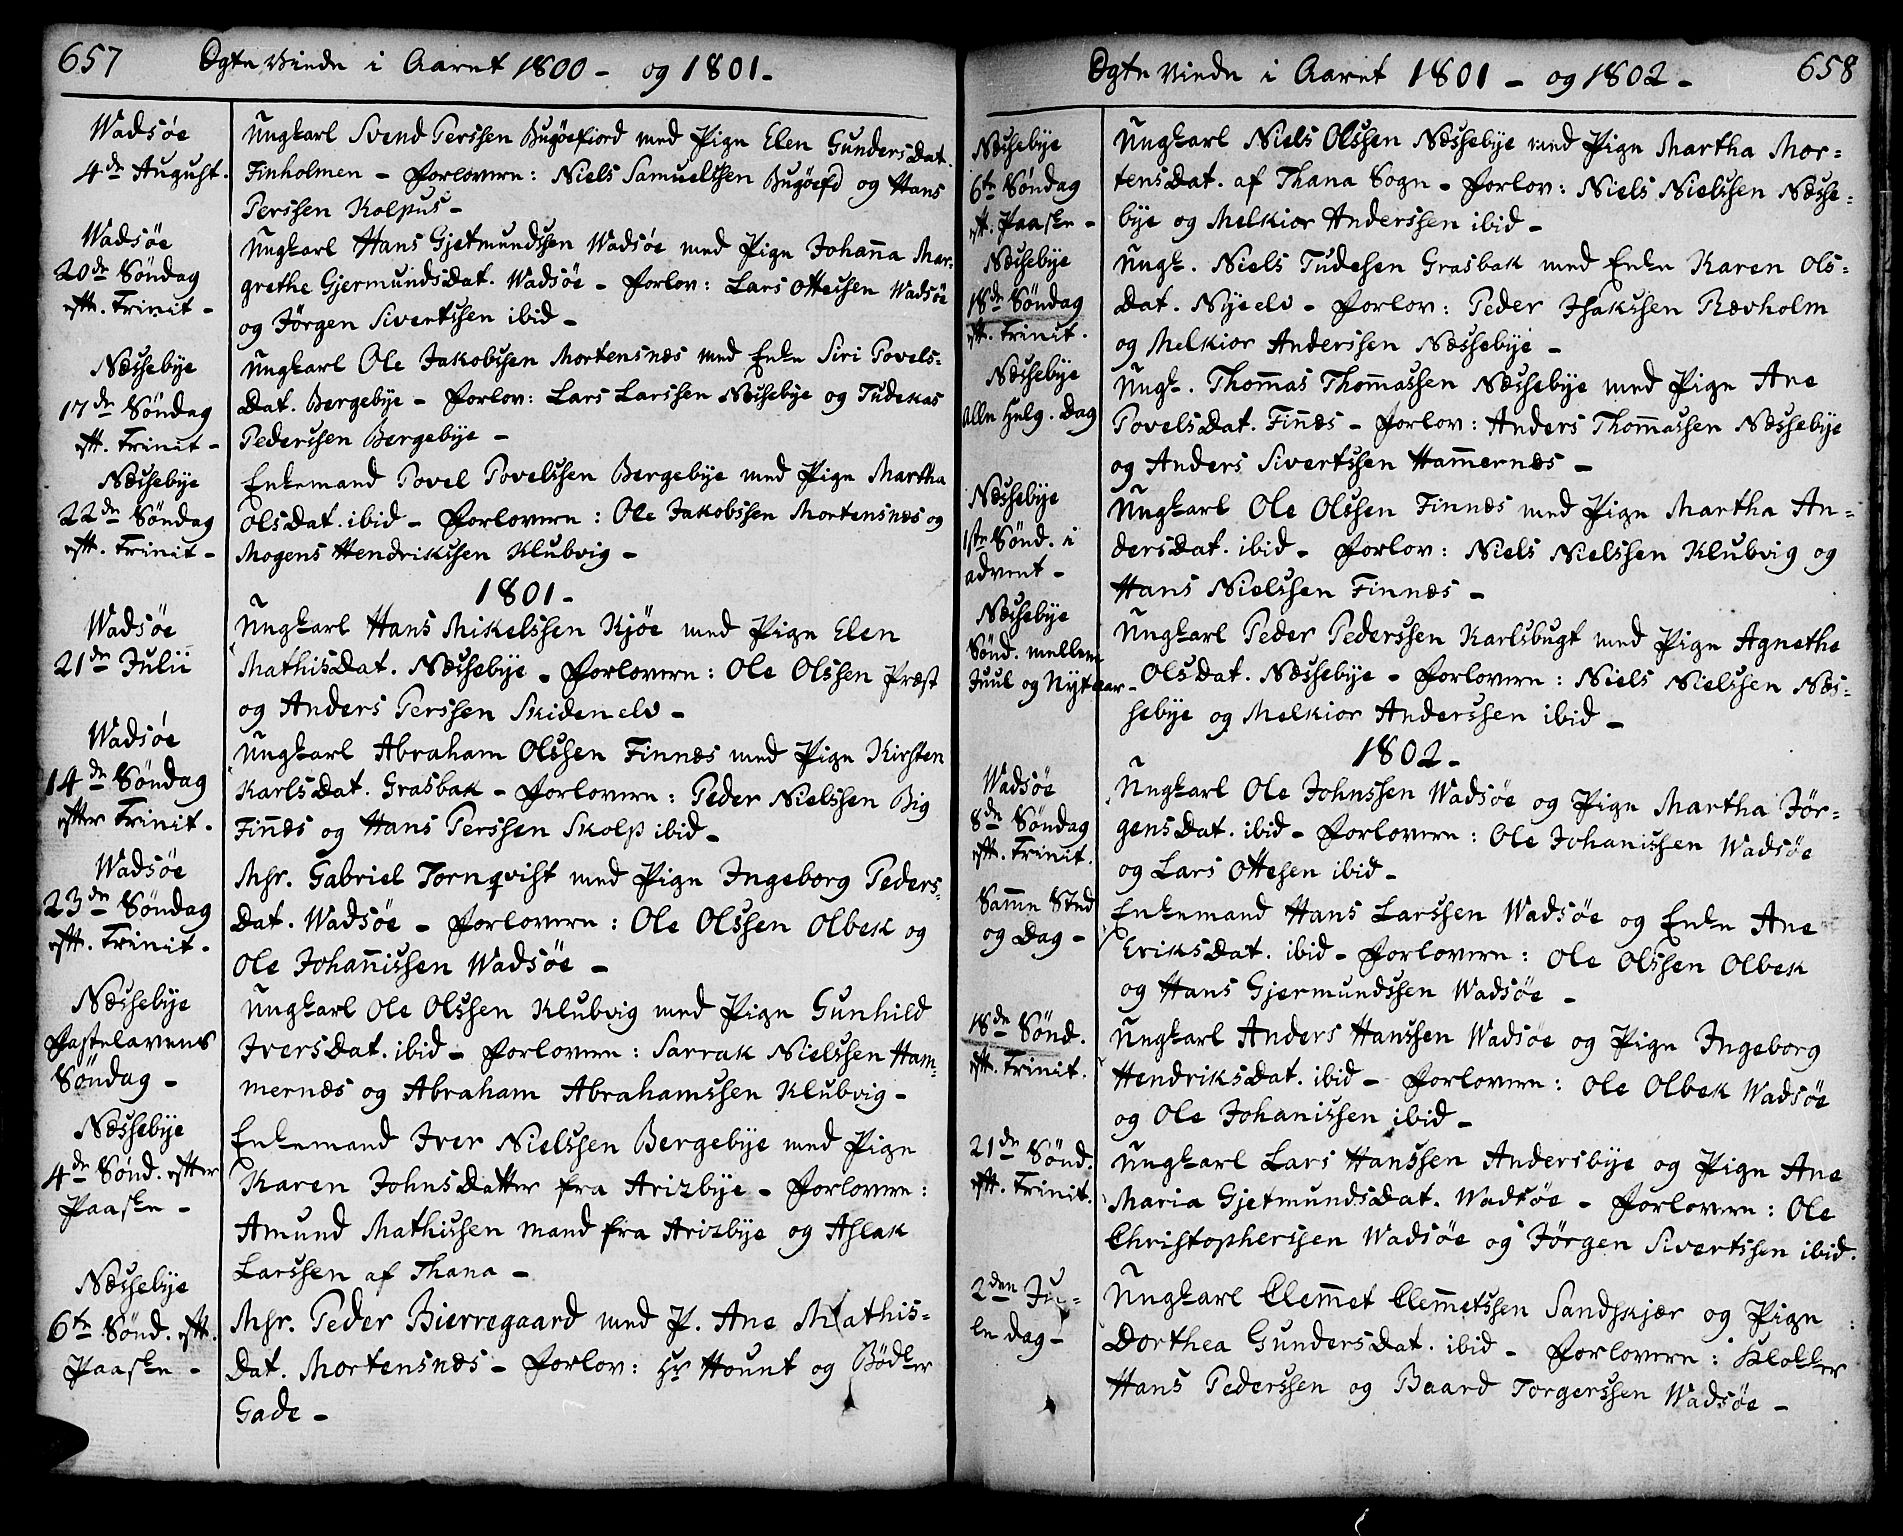 657 Ægte Viede i Aaret 1800 - og 1801 -
Wadsøe
4de August.
Ungkarl Svend Perssen Bugøefiord med Pige Elen GundersDat.
Finholmen - Forlovere: Niels Samuelssen Bugøefd og Hans
Perssen Kolpus -
Wadsøe
20de Søndag
eft. Trinit -
Ungkarl Hans Gjetmundssen Wadsøe med Pige Johanna Mar-
grethe GjermundsDat. Wadsøe - Forlov: Lars Ottesen Wadsøe
og Jørgen Sivertssen ibid -
Næssebye
17de Søndag
eft. Trinit -
Ungkarl Ole Jakobssen Mortensnæs med Enke Siri Povels-
Dat. Bergebye - Forlov: Lars Larssen Næssebye og Tudekas
Pederssen Bergebye -
Næssebye
22de Søndag
eft. Trinit -
Enkemand Povel Povelssen Bergebye med Pige Martha
OlsDat. ibid - Forlovere: Ole Jakobssen Mortensnæs og
Mogens Hendrikssen Klubvig -
1801 -
Wadsøe
21de Julii
Ungkarl Hans Mikelssen Kjøe med Pige Elen
MathisDat. Næssebye - Forlovere: Ole Olssen Præst
og Anders Perssen Skidenelv -
Wadsøe
14de Søndag
efter Trinit.
Ungkarl Abraham Olssen Finnæs med Pige Kirsten
KarlsDat. Grasbak - Forlovere: Peder Nielssen Big
Finnæs og Hans Perssen Skolp ibid -
Wadsøe
23de Søndag
eft. Trinit -
Msr. Gabriel Tornqvist med Pige Ingeborg Peders-
Dat. Wadsøe - Forlovere: Ole Olssen Olbek og
Ole Johannissen Wadsøe -
Næssebye
Fastelavens
Søndag -
Ungkarl Ole Olssen Klubvig med Pige Gunhild
IversDat. ibid - Forlovere: Sarrak Nielssen Ham-
mernæs og Abraham Abrahamssen Klubvig -
Næssebye
4de Sønd. efter
Paaske -
Enkemand Iver Nielssen Bergebye med Pige
Karen JohnsDatter fra Arizbye - Forlovere:
Amund Mathissen mand fra Arizbye og Aslak
Larssen af Thana -
Næssebye
6te Sønd. eft.
Paaske -
Msr. Peder Bierregaard med P. Ane Mathis-
Dat. Mortensnæs - Forlov: Hr Hount og Bødker
Gade -
Ægte Viede i Aaret 1801 - og 1802 - 658
Næssebye
6te Søndag
eft. Paaske -
Ungkarl Niels Olssen Næssebye med Pige Martha Mor-
tensDat. af Thana Sogn - Forlov: Niels Nielssen Næsse-
bye og Melkior Anderssen ibid -
Næssebye
18de Søndag
eft. Trinit.
Ungk. Niels Tudesen Grasbak med Enke Karen Ols-
Dat. Nyeelv - Forlov: Peder Isakssen Rævholm
og Melkior Anderssen Næssebye -
Næssebye
Alle Helg. Dag
Ungk. Thommas Thommassen Næssebye med Pige Ane
PovelsDat. Finnæs - Forlov: Anders Thommassen Næssebye
og Anders Sivertssen Hammernæs -
Næssebye
1ste Sønd. i
advent -
Ungkarl Ole Olssen Finnæs med Pige Martha An-
dersDat. ibid - Forlov: Niels Nielssen Klubvig og
Hans Nielssen Finnæs -
Næssebye
Sønd. mellem
Juul og Nytaar -
Ungkarl Peder Pederssen Karlsbugt med Pige Agnethe
OlsDat. Næssebye - Forlovere: Niels Nielssen Næs-
sebye og Melkior Anderssen ibid -
1802 -
Wadsøe
8de Søndag
eft. Trinit.
Ungkarl Ole Johnssen Wadsøe og Pige Martha Jør-
gensDat. ibid - Forlovere: Ole Johanissen Wadsøe
og Lars Ottesen ibid -
Samme Sted
og Dag -
Enkemand Hans Larssen Wadsøe og Enke Ane
EriksDat. ibid - Forlovere: Ole Olssen Olbek
og Hans Gjermundssen Wadsøe -
18de Sønd.
eft. Trinit.
Ungkarl Anders Hanssen Wadsøe og Pige Ingeborg
HendriksDat. ibid - Forlovere: Ole Olbek Wadsøe
og Ole Johanissen ibid -
21de Sønd.
eft. Trinit.
Ungkarl Lars Hanssen Andersbye og Pige Ane
Maria GjetmundsDat. Wadsøe - Forlovere: Ole
Christopherssen Wadsøe og Jørgen Sivertssen ibid.
2den Ju-
le dag -
Ungkarl Clemmet Clemmetssen Sandskjær og Pige
Dorthea GundersDat. ibid - Forlovere: Klokker
Hans Pederssen og Baard Torgerssen Wadsøe -